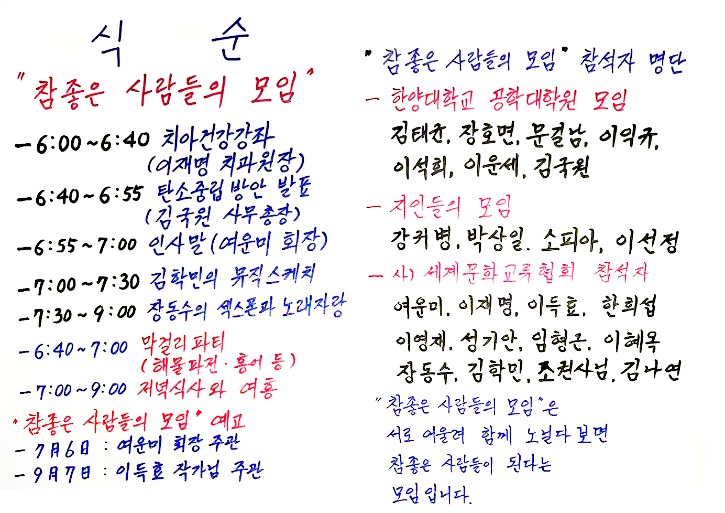 식 순
"참좋은 사람들의 모임"
- 6:00 ~ 6:40 치아건강강좌
(이재명 치과원장)
- 6:40 ~ 6:55 탄소중립방안 발표
(김국원 사무총장)
- 6:55 ~ 7:00 인사말 (여운미 회장)
- 7:00 ~ 7:30 김학민의 뮤직스케치
- 7:30 ~ 9:00 장동수의 섹스폰과 노래자랑
- 6:40 ~ 7:00 막걸리파티
(해물파전·홍어 등)
- 7:00 ~ 9:00 저녁식사와 여흥
"참좋은 사람들의 모임" 예고
- 7월6일 : 여운미 회장 주관
- 9월7일 : 이득효 작가님 주관
"참좋은 사람들의 모임" 참석자 명단
- 한양대학교 공학대학원 모임
김태균, 장호면, 문걸남, 이익규,
이석희, 이운세, 김국원
- 지인들의 모임
강커병, 박상일. 소피아, 이선정
- 사) 세계문화교육협회 참석자
여운미, 이재명, 이득효, 한희섭
이영재, 성기안, 임형근, 이혜옥
장동수, 김학민, 조권사님, 김나연
"참좋은 사람들의 모임"은
서로 어울려 함께 노닐다 보면
참좋은 사람들이 된다는
모임입니다.